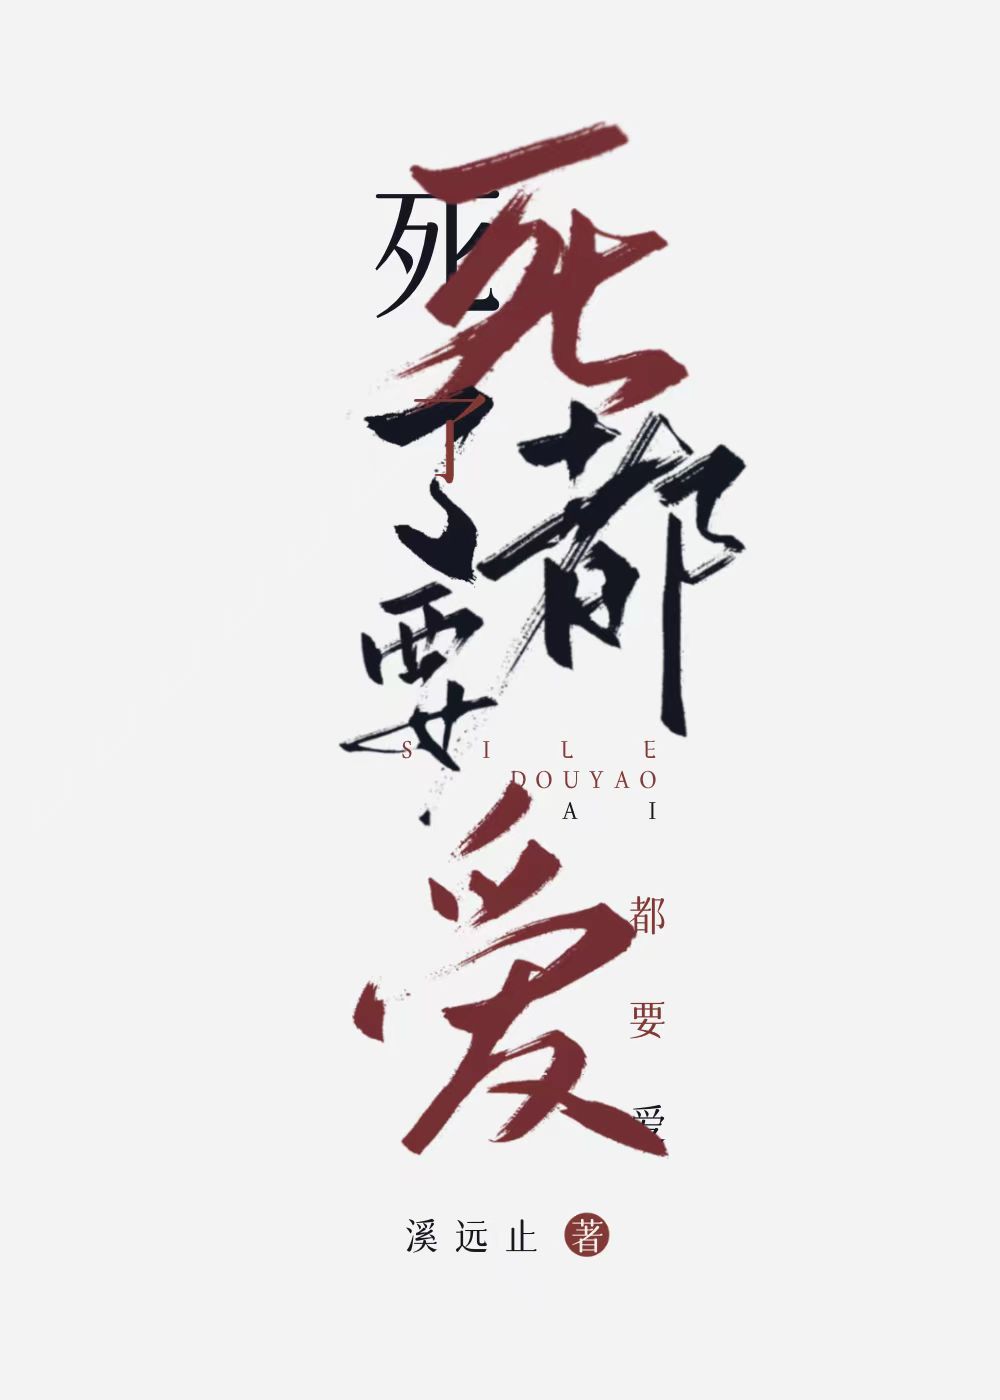 死了都要爱
死
了
SILE
DOUYAO
AI
都
要
爱
溪远止 著